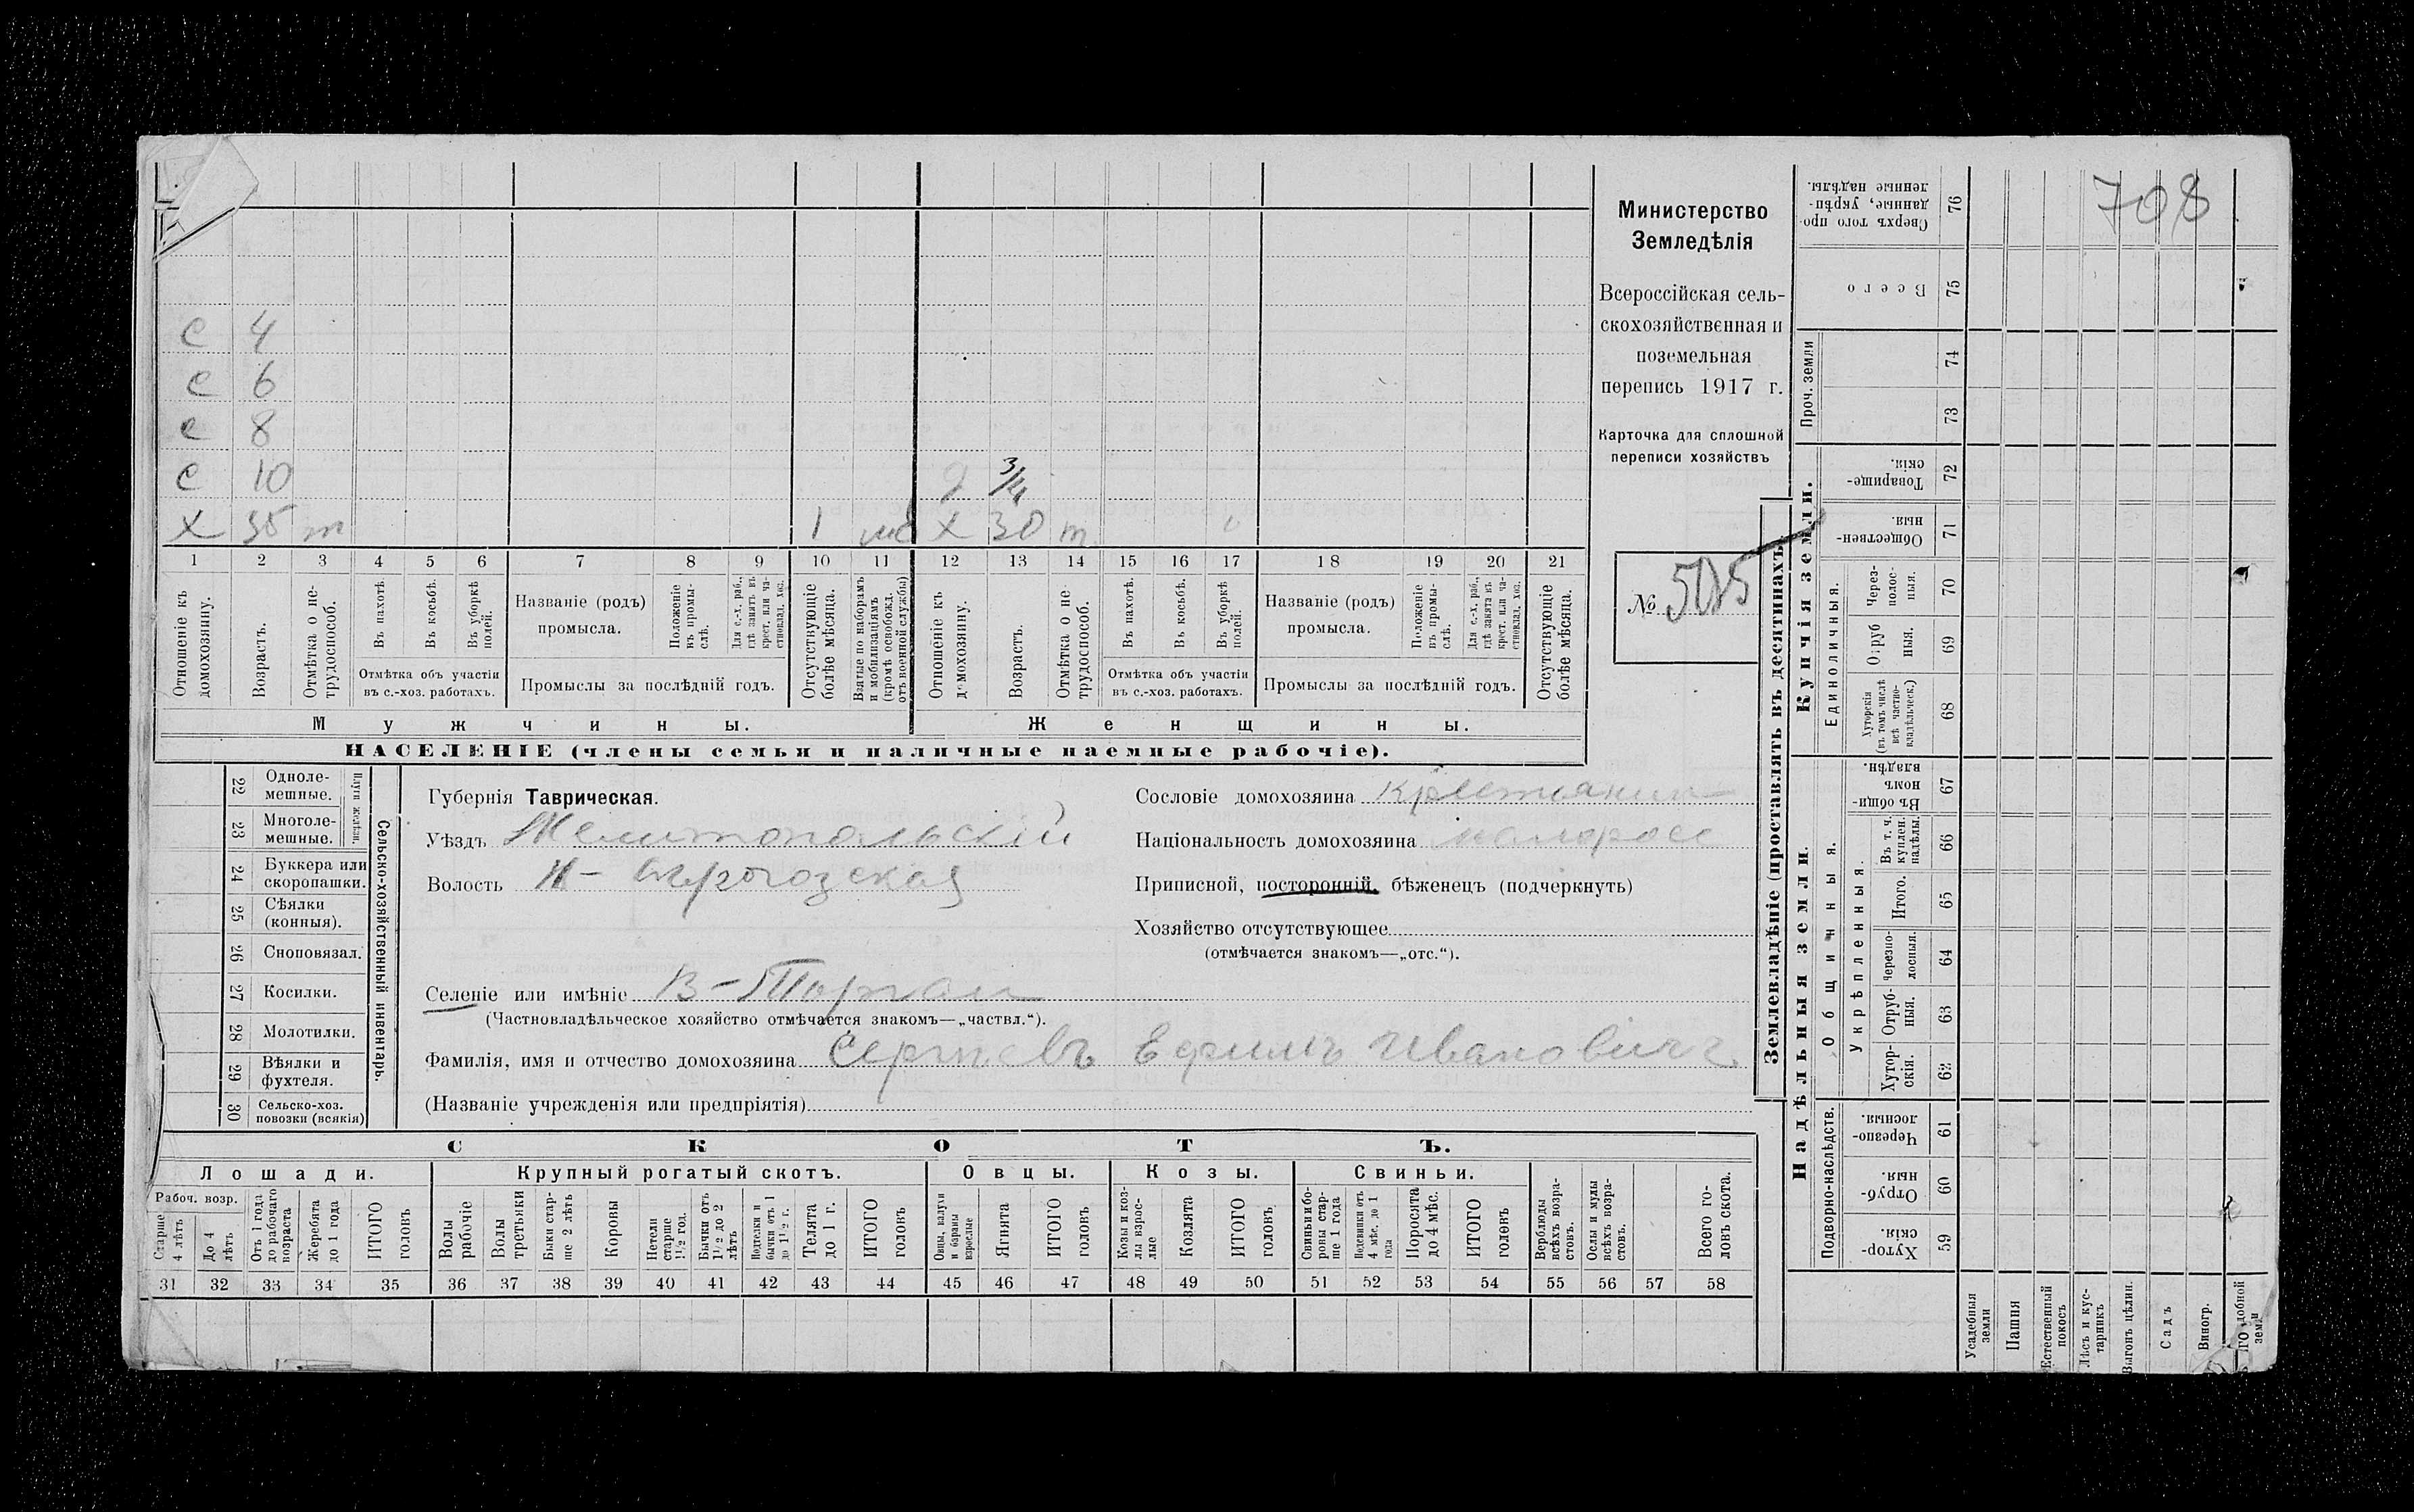 708
Министерство
Земледѣлія
Всероссійская сель-
скохозяйственная и
поземельная
перепись 1917 г.
Карточка для сплошной
переписи хозяйствъ
№ 505
с 4
с 6
с 8
с 10 д 3/4
х 35 т 1 х 30 т
1 2 3 4 5 6 7 8 9 10 11 12 13 14 15 16 17 18 19 20 21
Отношеніе къ домохозяину.
Возрастъ.
Отмѣтка о не-трудоспособ.
Въ пахотѣ.
Въ косьбѣ.
Въ уборкѣ полей.
Отмѣтка объ участіи
въ с.-хоз. работахъ.
Названіе (родъ)
промысла.
Положеніе въ промы-слѣ.
Для с.-х. раб., гдѣ занятъ въ крест. или ча-стновлад. хоз.
Промыслы за послѣдній годъ.
Отсутствующіе болѣе мѣсяца.
Взятые по наборамъ и мобилизаціямъ (кромѣ освобожд. отъ военной службы)
Отношеніе къ домохозяину.
Возрастъ.
Отмѣтка о не трудоспособ.
Въ пахотѣ.
Въ косьбѣ.
Въ уборкѣ полей.
Отмѣтка объ участіи
въ с.-хоз. работахъ.
Названіе (родъ)
промысла.
Положеніе въ промы-слѣ.
Для с.-х. раб., гдѣ занята въ крест. или ча-стновлад. хоз.
Промыслы за послѣдній годъ.
Отсутствующіе болѣе мѣсяца.
Мужчины. Женщины.
НАСЕЛЕНІЕ (члены семьи и наличные наемные рабочіе).
22 Одноле-мешные.
23 Многоле-мешные.
Плуги желѣзн.
24 Буккера или скоропашки.
25 Сѣялки (конныя).
26 Сноповязал.
27 Косилки.
28 Молотилки.
29 Вѣялки и фухтеля.
30 Сельско-хоз. повозки (всякія)
Сельско-хозяйственный инвентарь.
Губернія Таврическая.
Уѣздъ Мелитопольскій
Волость Н-Серогозская
Сословіе домохозяина крестьянин
Національность домохозяина малоросс
Приписной, посторонній, бѣженецъ (подчеркнуть)
Хозяйство отсутствующее
(отмѣчается знакомъ—„отс.“).
Селеніе или имѣніе В-Торгаи
(Частновладѣльческое хозяйство отмѣчается знакомъ—„частвл.“).
Фамилія, имя и отчество домохозяина Сергѣевъ Ефимъ Ивановичъ
(Названіе учрежденія или предпріятія)
СКОТЪ.
Лошади. Крупный рогатый скотъ. Овцы. Козы. Свиньи.
Рабоч. возр.
Старше 4 лѣтъ
До 4 лѣтъ
Отъ 1 года до рабочаго возраста
Жеребята до 1 года
ИТОГО головъ
Волы рабочіе
Волы третьяки
Быки стар-ше 2 лѣтъ
Коровы
Нетели старше 1½ год.
Бычки отъ 1½ до 2 лѣтъ
Подтелки и бычки отъ 1 до 1½ г.
Телята до 1 г.
ИТОГО головъ
Овцы, валухи и бараны взрослые
Ягнята
ИТОГО головъ
Козы и коз-лы взрос-лые
Козлята
ИТОГО головъ
Свиньи и бо-ровы стар-ше 1 года
Подсвинки отъ 4 мѣс. до 1 года
Поросята до 4 мѣс.
ИТОГО головъ
Верблюды всѣхъ возра-стовъ.
Ослы и мулы всѣхъ возра-стовъ.
Всего го-ловъ скота.
31 32 33 34 35 36 37 38 39 40 41 42 43 44 45 46 47 48 49 50 51 52 53 54 55 56 57 58
Землевладѣніе (проставлять въ десятинахъ)
Надѣльныя земли.
Купчія земли.
Проч. земли
Подворно-наслѣдств.
Общинныя.
Укрѣпленныя.
Единоличныя.
Хутор-скія. 59
Отруб-ныя. 60
Черезпо-лосныя. 61
Хутор-скія. 62
Отруб-ныя. 63
Черезпо-лосныя. 64
Итого. 65
Въ т. ч. куплен. надѣлы. 66
Въ общи-номъ владѣн. 67
Хуторскія (въ томъ числѣ всѣ частно-владѣльческ.) 68
Отруб ныя. 69
Через-полос-ныя. 70
Обществен-ныя. 71
Товарище-скія. 72
73
74
Всего 75
Сверхъ того про-данные, укрѣп-ленные надѣлы. 76
Усадебныя земли
Пашня
Естественный покосъ
Лѣсъ и кус-тарникъ
Выгонъ цѣлин.
Садъ
Виногр.